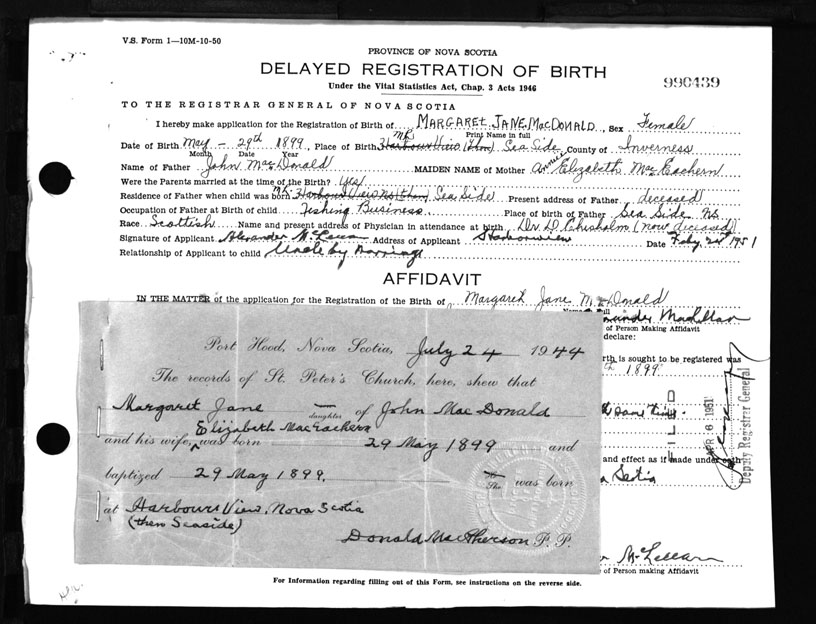 V.S. Form 1—10M-10-50
PROVINCE OF NOVA SCOTIA
DELAYED REGISTRATION OF BIRTH
990439
Under the Vital Statistics Act, Chap. 3 Acts 1946
TO THE REGISTRAR GENERAL OF NOVA SCOTIA
I hereby make application for the Registration of Birth of MARGARET JANE MACDONALD, Sex Female
Print Name in full
Date of Birth May - 29th 1899, Place of Birth Harbour View (then) Sea Side County of Inverness
Month Date Year
Name of Father John MacDonald MAIDEN NAME of Mother Annie Elizabeth MacEachern
Were the Parents married at the time of the Birth? Yes
Residence of Father when child was born Harbour View Sea Side Present address of Father deceased
Occupation of Father at Birth of child Fishing Business Place of birth of Father Sea Side NS
Race Scottish Name and present address of Physician in attendance at birth Dr. D Chisholm (now deceased)
Signature of Applicant Alexander McLellan Address of Applicant Harbourview Date Feby 24th 1951
Relationship of Applicant to child Uncle by marriage
AFFIDAVIT
IN THE MATTER of the application for the Registration of the Birth of Margaret Jane McDonald
MacLellan
of Person Making Affidavit
declare:
Port Hood, Nova Scotia, July 24 1944
The records of St. Peter's Church, here, shew that
Margaret Jane daughter of John MacDonald
Elizabeth MacEachern
and his wife, was born 29 May 1899 and
baptized 29 May 1899. She was born
at Harbour View, Nova Scotia
(then Seaside)
Donald MacPherson P. P.
birth is sought to be registered was
1899
and effect as if made under oath
Scotia
FILED
APR 6 1951
Deputy Registrar General
McLellan
of Person making Affidavit
For Information regarding filling out of this Form, see instructions on the reverse side.